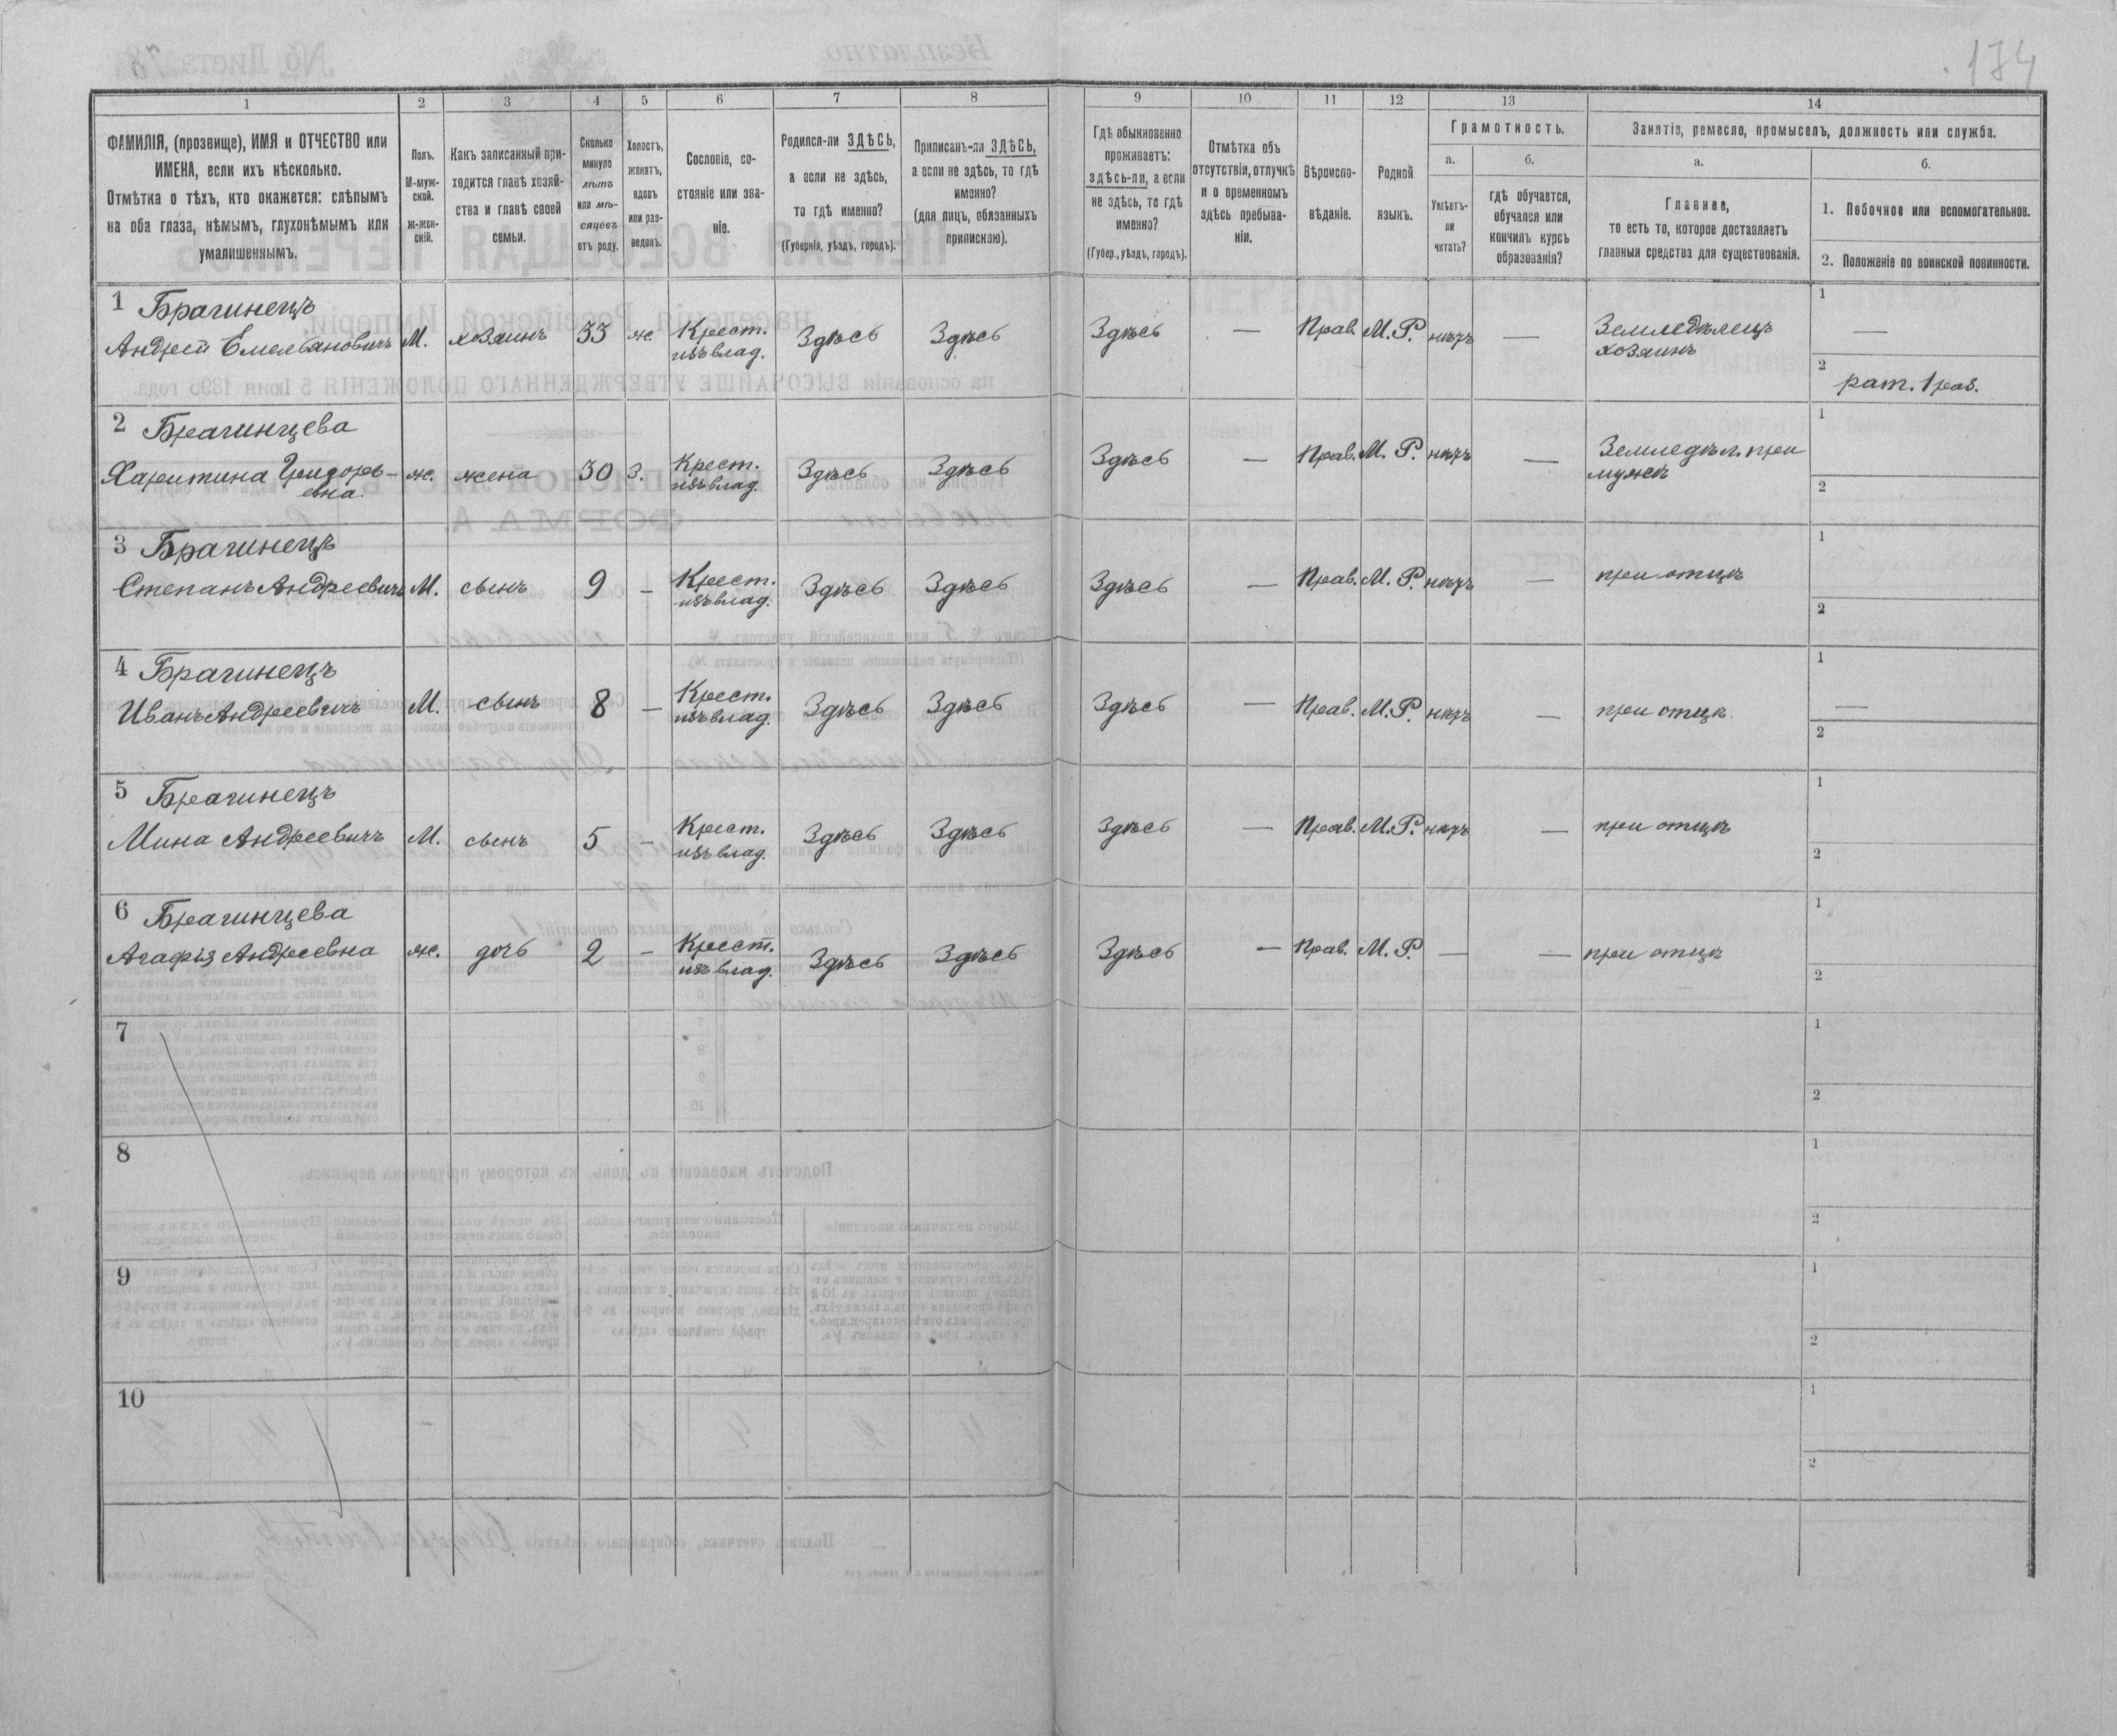 174
1
2
3
4
5
6
7
8
9
10
11
12
13
14
ФАМИЛІЯ, (прозвище), ИМЯ и ОТЧЕСТВО или
ИМЕНА, если ихъ нѣсколько.
Отмѣтка о тѣхъ, кто окажется: слѣпымъ
на оба глаза, нѣмымъ, глухонѣмымъ или
умалишеннымъ.
Полъ.
М-муж-
ской.
Ж-жен-
скій.
Какъ записанный при-
ходится главѣ хозяй-
ства и главѣ своей
семьи.
Сколько
минуло
лѣтъ
или мѣ-
сяцевъ
отъ роду.
Холостъ,
женатъ,
вдовъ
или раз-
веденъ.
Сословіе, со-
стояніе или зва-
ніе.
Родился-ли ЗДѢСЬ,
а если не здѣсь,
то гдѣ именно?
(Губернія, уѣздъ, городъ).
Приписанъ-ли ЗДѢСЬ,
а если не здѣсь, то гдѣ
именно?
(для лицъ, обязанныхъ
припискою).
Гдѣ обыкновенно
проживаетъ:
здѣсь-ли, а если
не здѣсь, то гдѣ
именно?
(Губер., уѣздъ, городъ).
Отмѣтка объ
отсутствіи, отлучкѣ
и о временномъ
здѣсь пребыва-
ніи.
Вѣроиспо-
вѣданіе.
Родной
языкъ.
Грамотность.
а.
Умѣетъ-
ли
читать?
б.
гдѣ обучается,
обучался или
кончилъ курсъ
образованія?
Занятіе, ремесло, промыселъ, должность или служба.
а.
Главное,
то есть то, которое доставляетъ
главныя средства для существованія.
б.
1. Побочное или вспомогательное.
2. Положеніе по воинской повинности.
1 Брагинецъ
Андрей Емельяновичъ М. хозяинъ 33 ж. Крест. изъ влад. Здѣсь Здѣсь Здѣсь — Прав. М.Р. нѣтъ — Земледѣлецъ хозяинъ
1 —
2 рат. 1 раз.
2 Брагинцева
Харитина Григорь-
евна. ж. жена 30 З. Крест. изъ влад. Здѣсь Здѣсь Здѣсь — Прав. М.Р. нѣтъ — Земледѣл. при мужѣ
1
2
3 Брагинецъ
Степанъ Андреевичъ М. сынъ 9 — Крест. изъ влад. Здѣсь Здѣсь Здѣсь — Прав. М.Р. нѣтъ — при отцѣ
1
2
4 Брагинецъ
Иванъ Андреевичъ М. сынъ 8 — Крест. изъ влад. Здѣсь Здѣсь Здѣсь — Прав. М.Р. нѣтъ — при отцѣ
1 —
2
5 Брагинецъ
Мина Андреевичъ М. сынъ 5 — Крест. изъ влад. Здѣсь Здѣсь Здѣсь — Прав. М.Р. нѣтъ — при отцѣ
1
2
6 Брагинцева
Агафія Андреевна ж. дочь 2 — Крест. изъ влад. Здѣсь Здѣсь Здѣсь — Прав. М.Р. — — при отцѣ
1
2
7
1
2
8
1
2
9
1
2
10
1
2